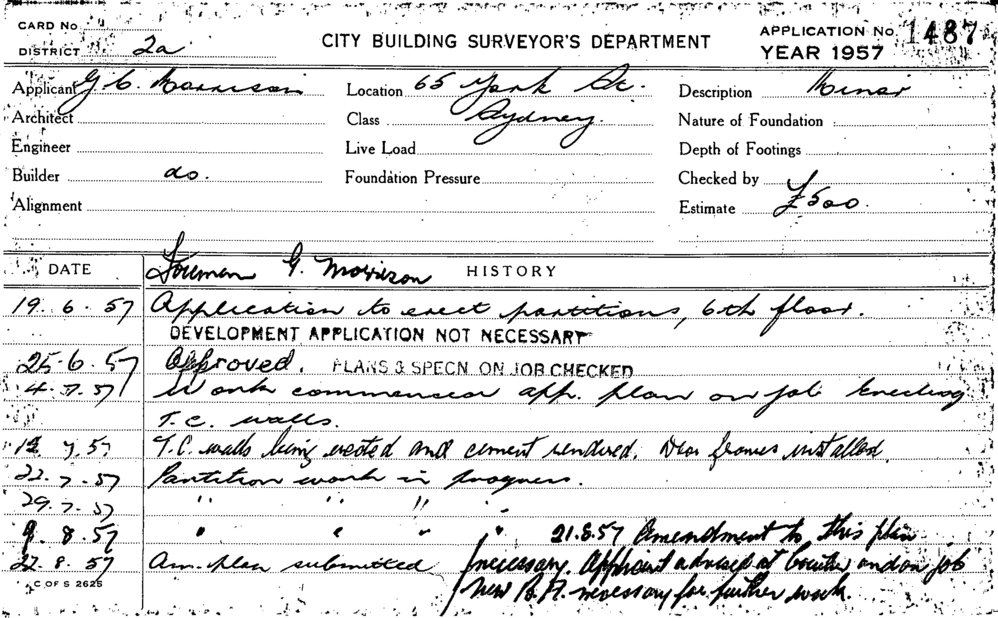 CARD No
DISTRICT 2a
CITY BUILDING SURVEYOR'S DEPARTMENT
APPLICATION No. 1487
YEAR 1957
Applicant G. C. Morrison
Location 65 York St.
Description Minor
Architect
Class Sydney.
Nature of Foundation
Engineer
Live Load
Depth of Footings
Builder do.
Foundation Pressure
Checked by
Alignment
Estimate £500.
Foreman G. Morrison
DATE HISTORY
19.6.57 Application to erect partitions, 6th floor.
DEVELOPMENT APPLICATION NOT NECESSARY
25.6.57 Approved. PLANS & SPECN ON JOB CHECKED
4.7.57 Work commenced app. plan on job Erecting
T.C. walls.
12 7.57 T.C. walls being erected and cement rendered. Door frames installed.
22.7.57 Partition work in progress.
29.7.57 " " " "
9.8.57 " " " " 21.8.57 Amendment to this plan
22.8.57 Am. plan submitted necessary. Applicant advised at Counter and on job
New B.A. necessary for further work.
C OF S 2625